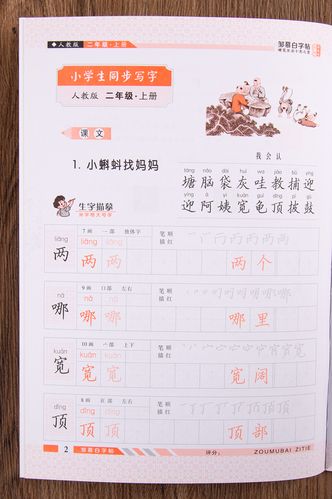 人教版 二年级·上册
邹慕白字帖
小学生同步写字
人教版 二年级·上册
课文
1. 小蝌蚪找妈妈
我会认
táng nǎo dài huī wā jiāo bǔ yíng
塘脑袋灰哇教捕迎
yíng ā yí kuān guī dǐng pī gǔ
迎阿姨宽龟顶披鼓
生字描摹
liǎng 7画 一部 独体字 笔顺描红
两 liǎng liǎng 两两 两个
nǎ 9画 口部 左右 笔顺描红
哪 nǎ nǎ 哪哪 哪里
kuān 10画 宀部 上下 笔顺描红
宽 kuān kuān 宽宽 宽阔
dǐng 8画 页部 左右 笔顺描红
顶 dǐng dǐng 顶顶 顶部
2 邹慕白字帖 评分: ZOUMUBAI ZITIE